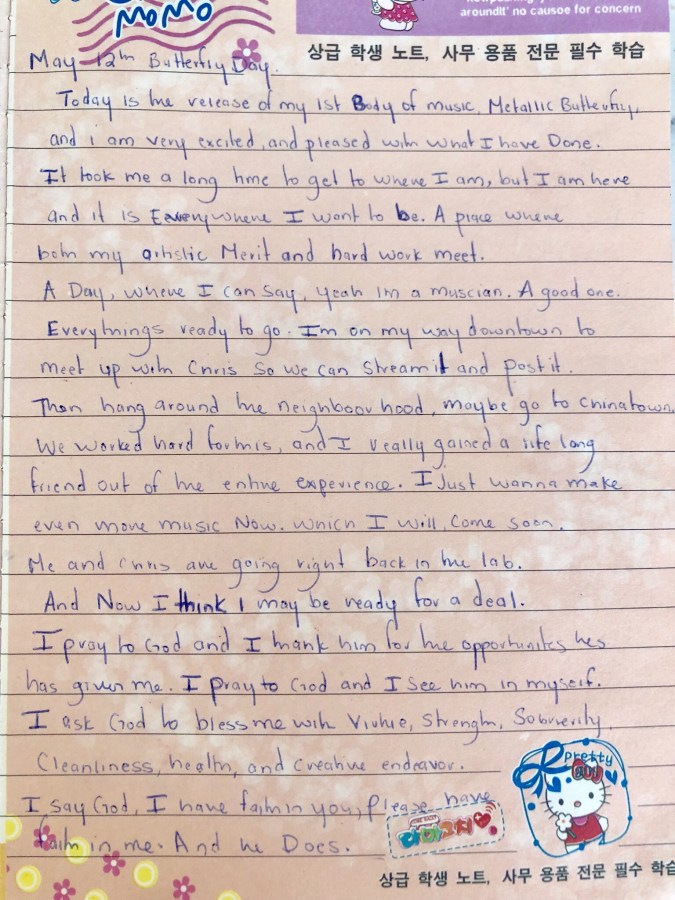 MOMO
aroundit' no causoe for concern
상급 학생 노트, 사무 용품 전문 필수 학습
May 12th Butterfly Day.
Today is the release of my 1st Body of music, Metallic Butterfly,
and i am very excited, and pleased with what I have Done.
It took me a long time to get to where I am, but I am here
and it is Everywhere I want to be. A place where
both my artistic Merit and hard work meet.
A Day, where I can say, yeah Im a muscian. A good one.
Everythings ready to go. I'm on my way downtown to
meet up with Chris So we can Stream it and post it.
Then hang around the neighboor hood, maybe go to Chinatown.
We worked hard for this, and I really gained a life long
friend out of the entire experience. I Just wanna make
even more music Now. Which I will, Come soon.
Me and Chris are going right back in the lab.
And Now I think I may be ready for a deal.
I pray to God and I thank him for the opportunites hes
has given me. I pray to God and I See him in myself.
I ask God to bless me with Virtue, Strength, Soberierity,
Cleanliness, health, and Creative endeavor.
I say God, I have faith in you, Please have
faith in me. And he Does.
Pretty
Girl
다마고치
상급 학생 노트, 사무 용품 전문 필수 학습